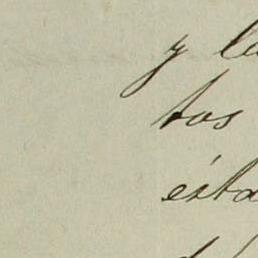 y la
tos
ésta